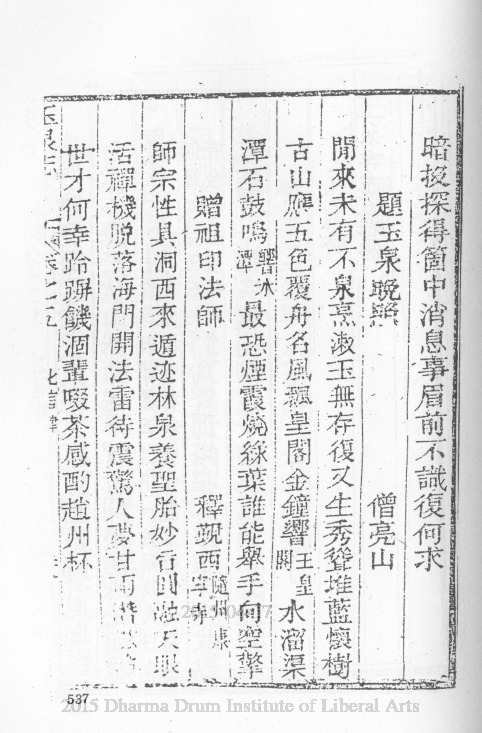 暗投探得箇中消息事眉前不識復何求
題玉泉晚照 僧亮山
閒來未有不泉烹漱玉無存復又生秀聳堆藍懷樹
古山 五色覆舟名風飄皇閣金鐘響玉皇閣水溜渠
潭石鼓鳴響水潭最恐煙霞燒綠葉誰能舉手向空擎
贈祖印法師 釋覲西隨州康寧寺
師宗性具洞西來遁迹林泉養聖胎妙 圓融天眼
活禪機脫落海門開法雷待震驚人夢甘雨
世才何幸跉跰饑涸輩啜茶感酌趙州杯
玉泉志 卷之五
537
2015 Dharma Drum Institute of Liberal Arts